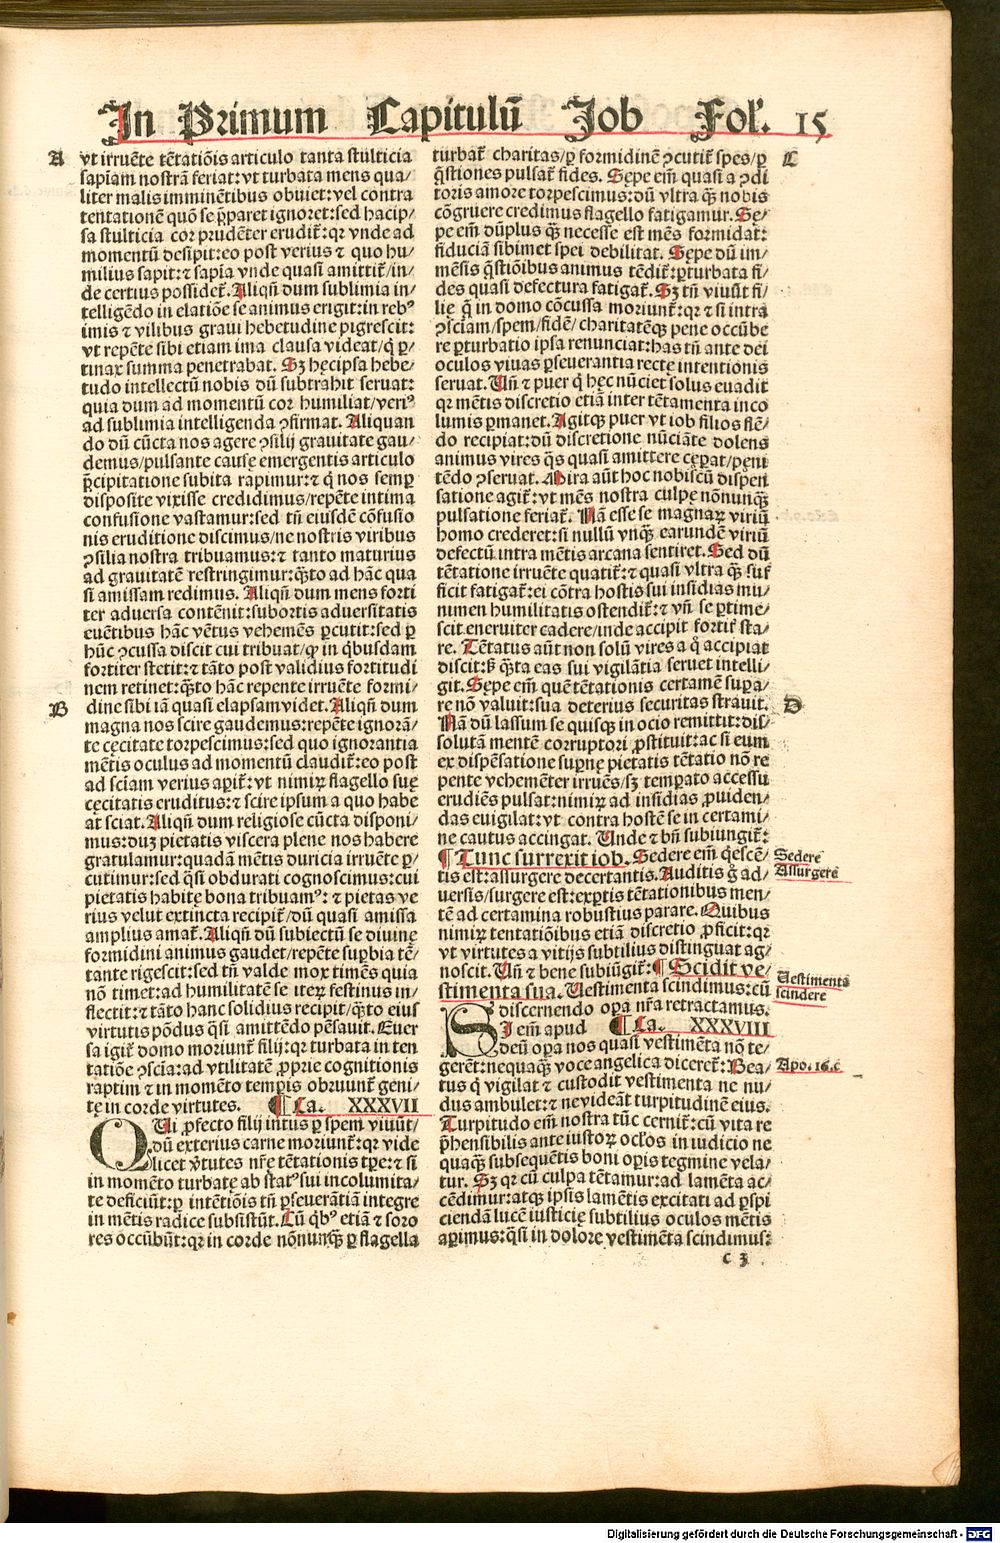 In Primum Capitulū Job Fol'. 15
A
vt irruēte tētatiōis articulo tanta stulticia
sapīam nostrā feriat: vt turbata mens qua/
liter malis imminētibus obuiet: vel contra
tentationē quō se p̄paret ignoret: sed hac ip/
sa stulticia cor prudēter erudit̄: qꝛ vnde ad
momentū desipit: eo post verius ⁊ quo hu/
milius sapit: ⁊ sapīa vnde quasi amittit̄/in/
de certius possidet̄. Aliqñ dum sublimia in/
telligēdo in elatiōe se animus erigit: in rebꝰ
imis ⁊ vilibus graui hebetudine pigrescit:
vt repēte sibi etiam ima clausa videat/q̇ ꝑ/
tinax summa penetrabat. Sꝫ hęc ipsa hebe/
tudo intellectū nobis dū subtrahit seruat:
quia dum ad momentū cor humiliat/veriꝰ
ad sublimia intelligenda ꝯfirmat. Aliquan
do dū cūcta nos agere ꝯsilij grauitate gau/
demus/pulsante causę emergentis articulo
p̄cipitatione subita rapimur: ⁊ q̇ nos semꝑ
disposite vixisse credidimus/repēte intima
confusione vastamur: sed tñ eiusdē cōfusio
nis eruditione discimus/ne nostris viribus
ꝯsilia nostra tribuamus: ⁊ tanto maturius
ad grauitatē restringimur: q̄̄to ad hāc qua
si amissam redimus. Aliqñ dum mens forti
ter aduersa contēnit: subortis aduersitatis
euētibus hāc vētus vehemēs ꝑcutit: sed ꝑ
hūc ꝯcussa discit cui tribuat/ꝙ in q̇busdam
fortiter stetit: ⁊ tāto post validius fortitudi
nem retinet: q̄̄to hāc repente irruēte formi/
B
dine sibi iā quasi elapsam videt. Aliqñ dum
magna nos scire gaudemus: repēte ignorā/
te cęcitate torpescimus: sed quo ignorantia
mētis oculus ad momentū claudit̄: eo post
ad sciam verius aꝑit̄: vt nimiꝝ flagello suę
cęcitatis eruditus: ⁊ scire ipsum a quo habe
at sciat. Aliqñ dum religiose cūcta disponi/
mus: duꝫ pietatis viscera plene nos habere
gratulamur: quadā mētis duricia irruēte ꝑ/
cutimur: sed q̄si obdurati cognoscimus: cui
pietatis habitę bona tribuamꝰ: ⁊ pietas ve
rius velut extincta recipit̄/dū quasi amissa
amplius amat̄. Aliqñ dū subiectū se diuinę
formidini animus gaudet/repēte suꝑbia tē/
tante rigescit: sed tñ valde mox timēs quia
nō timet: ad humilitatē se iteꝝ festinus in/
flectit: ⁊ tāto hanc solidius recipit/q̄̄to eius
virtutis pōdus q̄si amittēdo pēsauit. Euer
sa igit̄ domo moriunt̄ filij: qꝛ turbata in ten
tatiōe ꝯscīa: ad vtilitatē ꝓprie cognitionis
raptim ⁊ in momēto temꝑis obruunt̄ geni/
tę in corde virtutes. ¶ Ca. XXXVII
QUi ꝓfecto filij intus ꝑ spem viuūt/
dū exterius carne moriunt̄: qꝛ vide
licet v̄tutes nr̄ę tētationis tꝑe: ⁊ si
in momēto turbatę ab statꝰ sui incolumita/
te deficiūt: ꝑ intētiōis tñ ꝑseuerātiā integre
in mētis radice subsistūt. Cū q̇bꝰ etiā ⁊ soro
res occūbūt: qꝛ in corde nōnunq̄̄ ꝑ flagella
C
turbat̄ charitas/ꝑ formidinē ꝯcutit̄ spes/ꝑ
q̄stiones pulsat̄ fides. Sępe em̄ quasi a ꝯdi
toris amore torpescimus: dū vltra q̄̄ nobis
cōgruere credimus flagello fatigamur. Sę/
pe em̄ dū plus q̄̄ necesse est mēs formidat:
fiduciā sibimet spei debilitat. Sępe dū im/
mēsis q̄stiōibus animus tēdit̄: ꝑturbata fi/
des quasi defectura fatigat̄. Sꝫ tñ viuūt fi/
lię q̄ in domo cōcussa moriunt̄: qꝛ ⁊ si intra
ꝯsciam/spem/fidē/charitatēqꝫ pene occūbe
re ꝑturbatio ipsa renunciat: has tñ ante dei
oculos viuas ꝑseuerantia rectę intentionis
seruat. Uñ ⁊ puer q̇ hęc nūciet solus euadit
qꝛ mētis discretio etiā inter tētamenta inco
lumis ꝑmanet. Agitqꝫ puer vt iob filios flē/
do recipiat: dū discretione nūciāte dolens
animus vires q̄s quasi amittere cęꝑat/pęni
tēdo ꝯseruat. Mira aūt hoc nobiscū dispen
satione agit̄: vt mēs nostra culpę nōnunq̄̄
pulsatione feriat̄. Nā esse se magnaꝝ viriū
homo crederet: si nullū vnq̄̄ earundē viriū
defectū intra mētis arcana sentiret. Sed dū
tētatione irruēte quatit̄: ⁊ quasi vltra q̄̄ suf
ficit fatigat̄: ei cōtra hostis sui insidias mu/
nimen humilitatis ostendit̄: ⁊ vñ se ꝑtime/
scit eneruiter cadere/inde accipit fortit̄ sta/
re. Tētatus aūt non solū vires a q̊ accipiat
discit: sꝫ q̄̄ta eas sui vigilātia seruet intelli/
git. Sępe em̄ quē tētationis certamē suꝑa/
D
re nō valuit: sua deterius securitas strauit.
Nā dū lassum se quisqꝫ in ocio remittit: dis/
solutā mentē corruptori ꝓstituit: ac si eum
ex dispēsatione suꝑnę pietatis tētatio nō re
pente vehemēter irruēs/sꝫ temꝑato accessu
erudiēs pulsat: nimiꝝ ad insidias ꝓuiden/
das euigilat: vt contra hostē se in certami/
ne cautus accingat. Unde ⁊ bñ subiungit̄:
¶ Tunc surrexit iob. Sedere em̄ q̇escē/
tis est: assurgere decertantis. Auditis g̊ ad/
uersis/surgere est: exꝑtis tētationibus men/
tē ad certamina robustius parare. Quibus
nimiꝝ tentatiōibus etiā discretio ꝓficit: qꝛ
vt virtutes a vitijs subtilius distinguat ag/
noscit. Uñ ⁊ bene subiūgit̄: ¶ Scidit ve/
stimenta sua. Uestimenta scindimus: cū
discernendo oꝑa nr̄a retractamus.
Sedere
Assurgere
Uestimenta
scindere
¶ Ca. XXXVIII
SI em̄ apud
deū oꝑa nos quasi vestimēta nō te/
gerēt: nequaq̄̄ voce angelica diceret̄: Bea/
Apo. 16. c
tus q̇ vigilat ⁊ custodit vestimenta ne nu/
dus ambulet: ⁊ ne videāt turpitudinē eius.
Turpitudo em̄ nostra tūc cernit̄: cū vita re
p̄hensibilis ante iustoꝝ oc̄los in iudicio ne
quaq̄̄ subsequētis boni oꝑis tegmine vela/
tur. Sꝫ qꝛ cū culpa tētamur: ad lamēta ac/
cēdimur: atqꝫ ipsis lamētis excitati ad ꝑspi
ciendā lucē iusticię subtilius oculos mētis
aꝑimus: q̄si in dolore vestimēta scindimus:
c 3
Digitalisierung gefördert durch die Deutsche Forschungsgemeinschaft - DFG